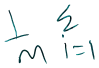 1/m Σ i=1